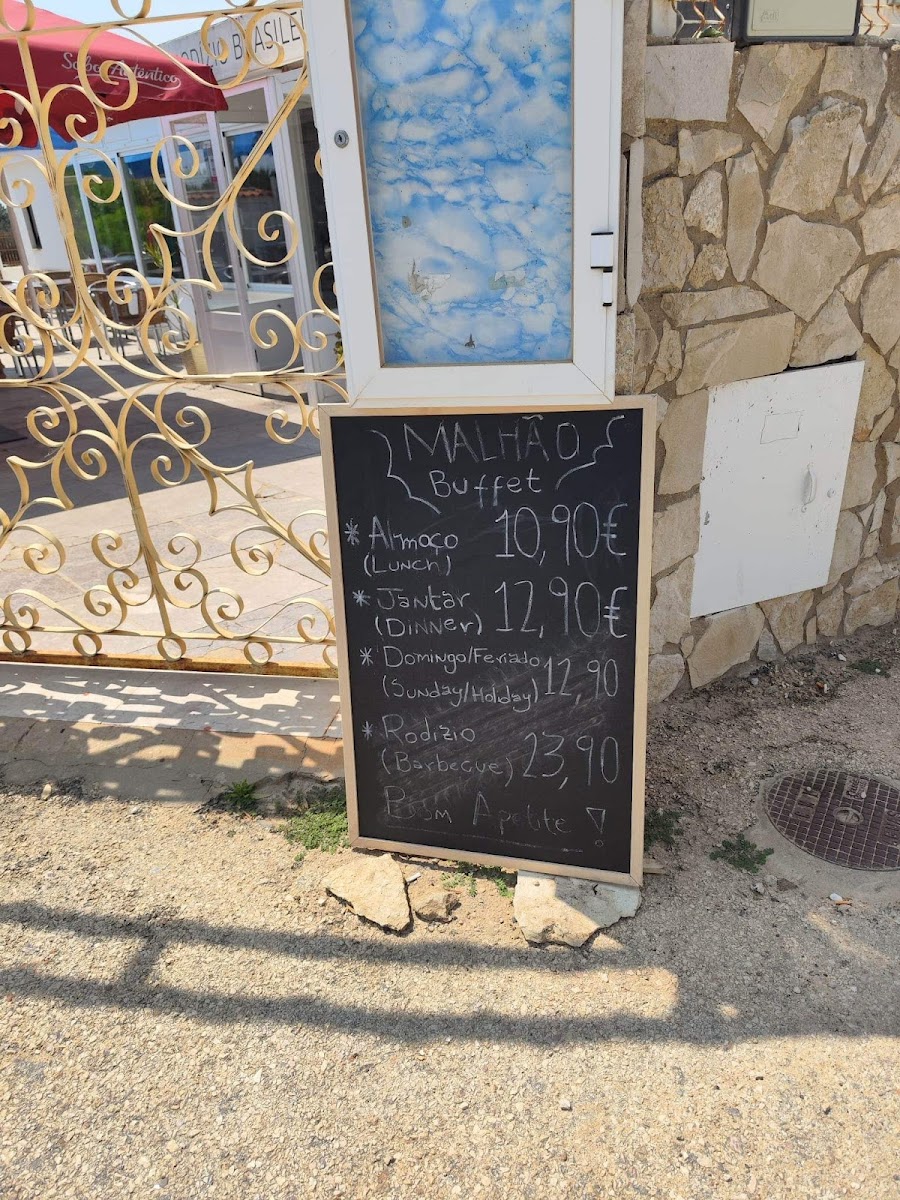 Sabor Autêntico
RODÍZIO BRASILEI
MALHÃO
Buffet
* Almoço 10,90€
(Lunch)
* Jantar 12,90€
(Dinner)
* Domingo/Feriado 12,90
(Sunday/Holiday)
* Rodizio 23,90
(Barbecue)
Bom Apetite!